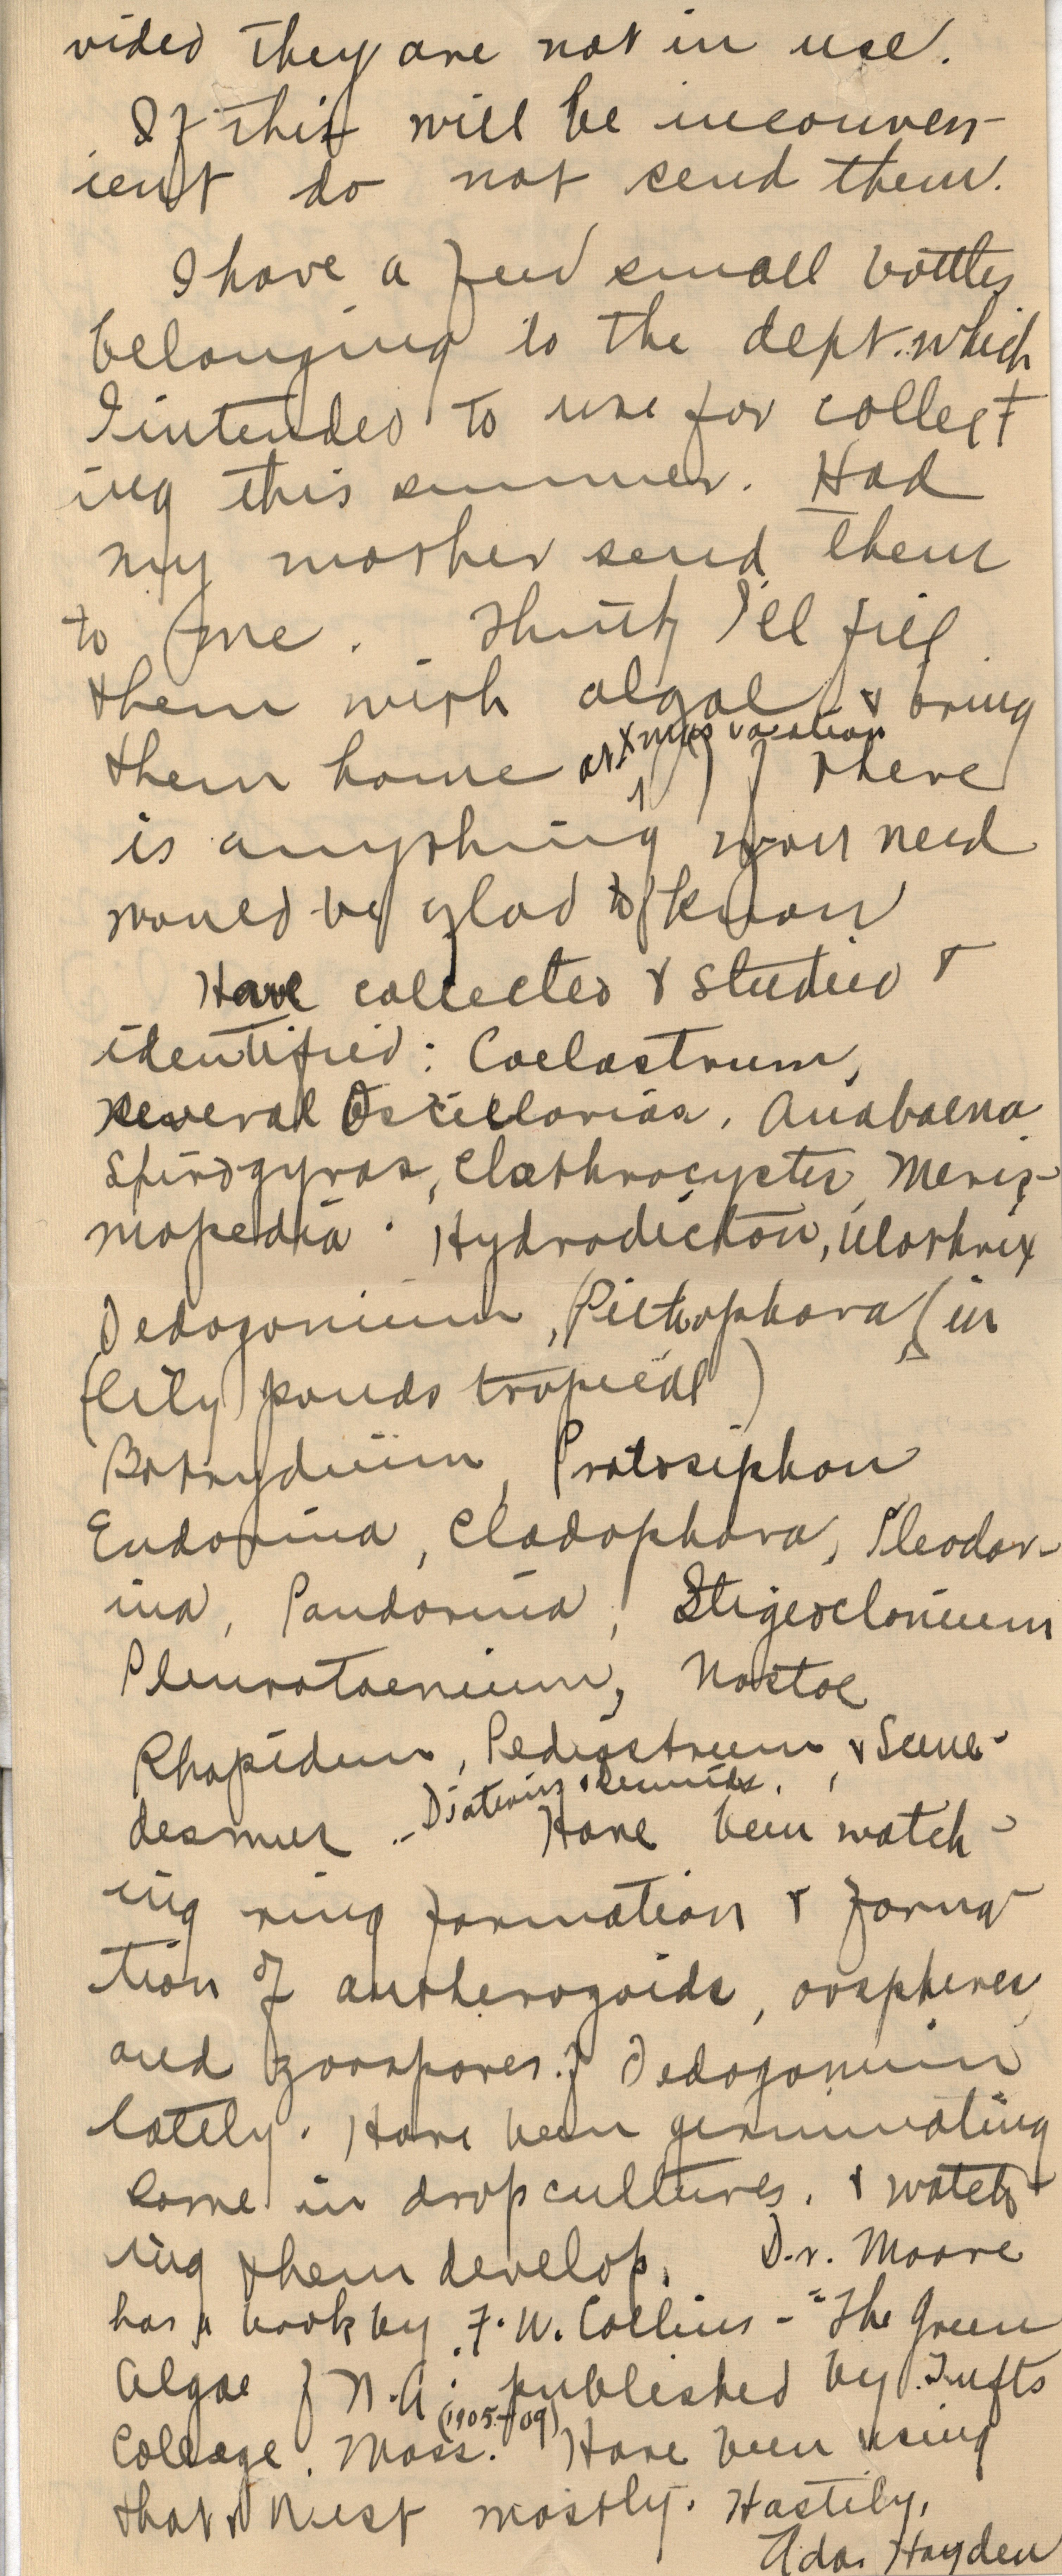 vided they are not in use.
If this will be inconven-
ient do not send them.
I have a few small bottles
belonging to the dept. which
I intended to use for collect
ing this summer. Had
my mother send them
to me. Think I'll fill
them with algae & bring
them home at Xmas vacation If there
is anything you need
would be glad to know
Have collected & studied &
identified: Coelastrum,
several Oscillarias, Anabaena
Spirogyras, Clathrocystis, Meris-
mopedia. Hydrodicton, Ulothrix
Oedogonium, Pithophora (in
(lily ponds tropical)
Botrydium, Protosiphon
Eudorina, Cladophora, Pleodor-
ina, Pandorina, Stigeoclonium
Pleurotaenium, Nostoc
Rhapidium, Pediastrum, & Scene-
desmus .. Diatoms & Desmids. Have been watch-
ing ring formation & forma-
tion of antherozoids, oospheres
and zoospores of Oedogonium
lately. Have been germinating
some in drop cultures. & watch-
ing them develop. Dr. Moore
has a book by F. W. Collins - "The Green
Algae of N.A. published by Tufts
College. Mass. (1905-09) Have been using
that & West mostly. Hastily,
Ada Hayden